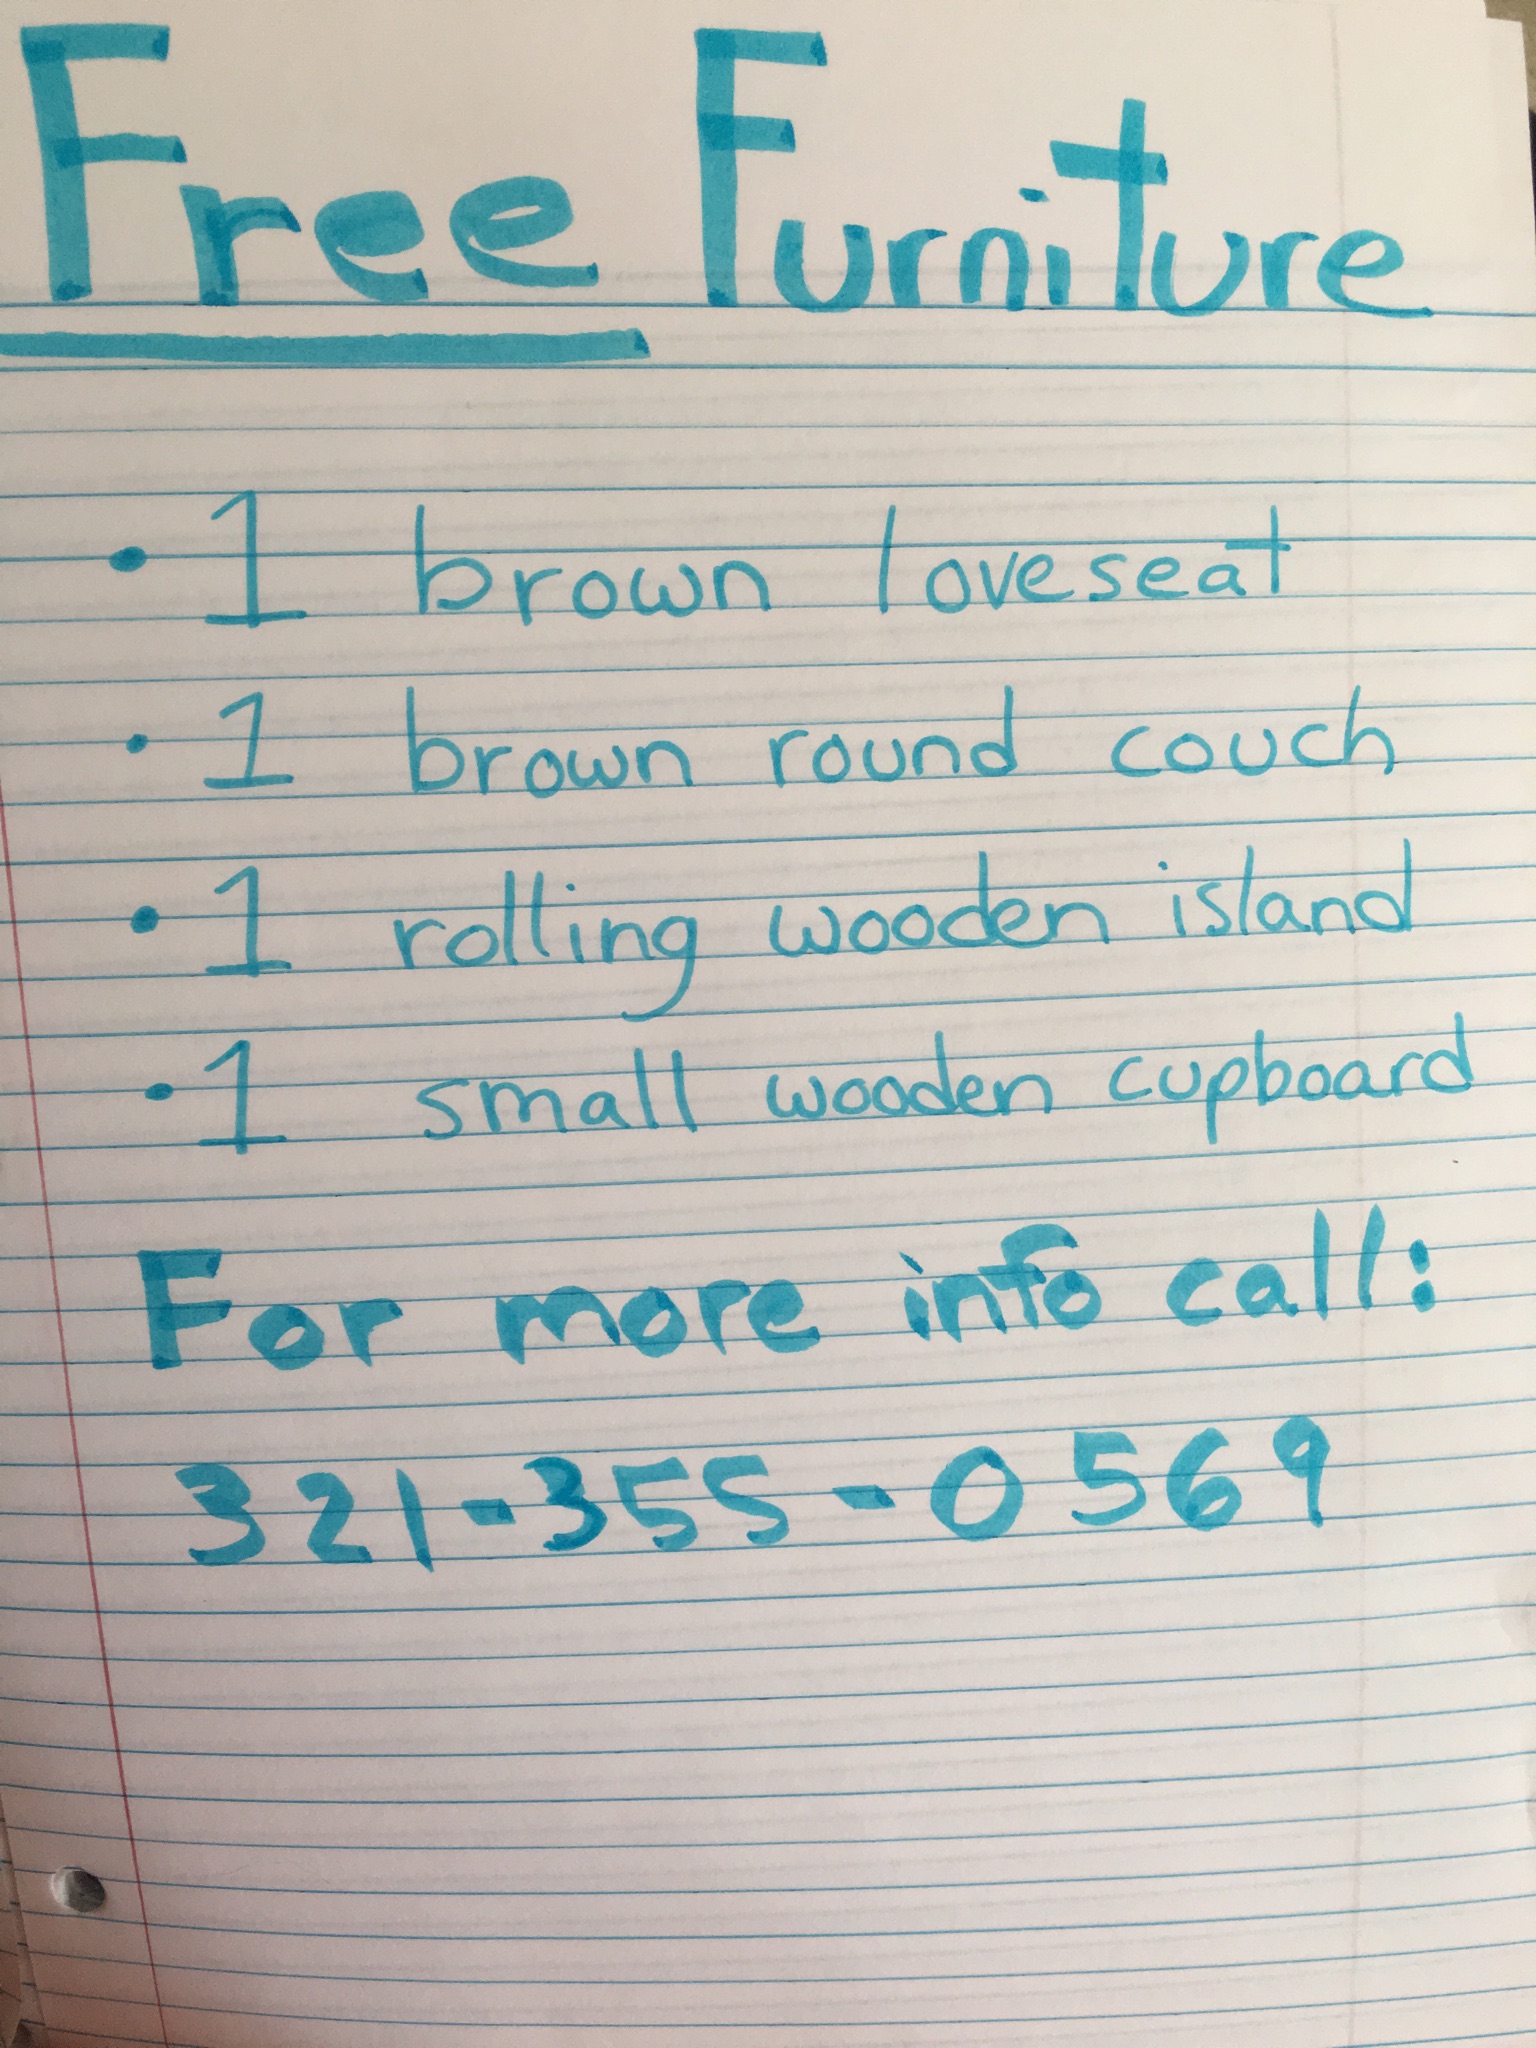 Free Furniture
• 1 brown loveseat
• 1 brown round couch
• 1 rolling wooden island
• 1 small wooden cupboard
For more info call:
321-355-0569